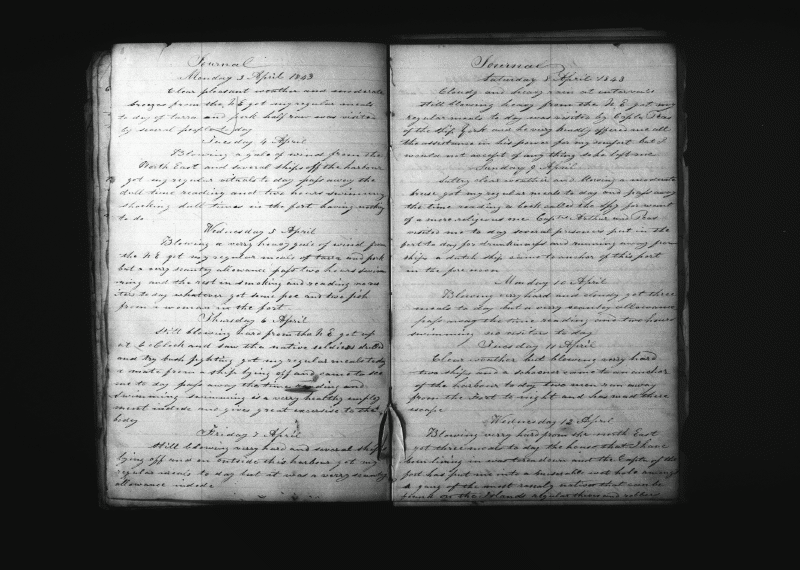 Journal
Monday 3 April 1843
Clear pleasant weather and moderate
breezes from the N E got my regular meals
to day of tarra and pork half raw was visited
by several people to day
Tuesday 4 April
Blowing a gale of wind from the
North East and several ships off the harbour
got my regular meals to day pass away the
dull time reading and two hours swimming
shocking dull times in the fort having nothing
to do
Wednesday 5 April
Blowing a verry heavy gale of wind from
the N E got my regular meals of tarra and pork
but a very scanty allowance past two hours swim
ming and the rest in smoking and reading no vis
iters to day whatever got some poe and two fish
from a woman in the fort
Thursday 6 April
Still blowing hard from the N E got up
at 6 Oclock and saw the native soldiers drilled
and try bush fighting got my regular meals to day
a mate from a ship lying off and came to see
me to day pass away the time reading and
swimming swimming is a verry healthy employ
ment indeed and gives great excersise to the
bodey
Friday 7 April
Still blowing verry hard and several ships
lying off and on outside this harbour got my
regular meals to day but it was a verry scanty
allowance indeed
Journal
Saturday 8 April 1843
Cloudy and heavy rain at intervals
still blowing heavy from the N E got my
regular meals to day was visited by Captn
of the ship York and he very kindly offered me all
the assistance in his power for my comfort but I
would not accept of any thing so he left me
Sunday 9 April
Settled clear weather and blowing a moderate
breese got my regular meals to day and pass away
the time reading a book called the Spy for want
of a more religious one Captns Arthur and
visited me to day several prisoners put in the
fort to day for drunkenness and running away from
ships a dutch ship came to anchor of this port
in the fore noon
Monday 10 April
Blowing verry hard and cloudy got three
meals to day but a verry scanty allowance
pass away the time reading and two hours
swimming no visiters to day
Tuesday 11 April
Clear weather but blowing verry hard
two ships and a schooner came to an anchor
of the harbour to day two men run away
from the Fort to night and has made there
escape
Wednesday 12 April
Blowing verry hard from the north East
got three meals to day the house that I have
been living in was taken down and the Captn of the
fort has put me into a miserable wet hole amongst
a gang of the most natives that can be
found on the Islands regular theives and robbers